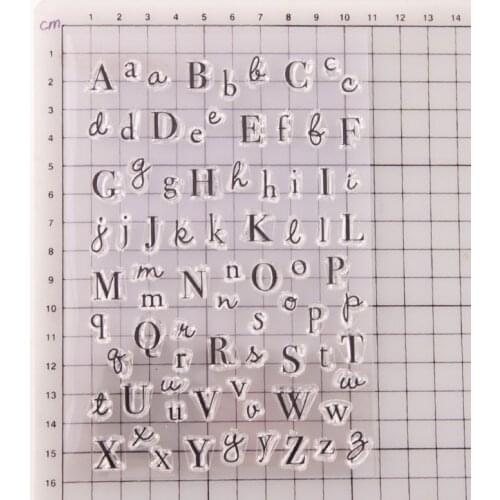 cm 1 2 3 4 5 6 7 8 9 10 11 12 13 14
1
2 A a a B b b C c c
3
4 d d D e e E f f F
5
6 G g g H h h i I i
7
8 j j J k k K l l L
9 M m m N n n O o o P
10
11 q Q r s p p
12 q r R s S t T
13
14 t U u u V v v W w w
15 X x x Y y y Z z z
16